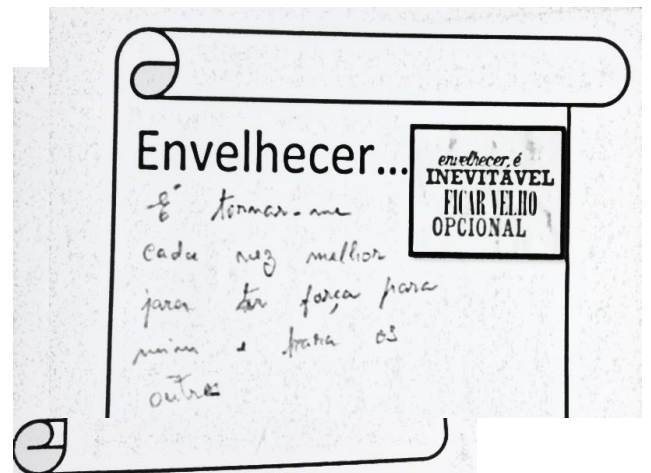 Envelhecer...
envelhecer, é
INEVITÁVEL
FICAR VELHO
OPCIONAL
É tornar-me
cada vez melhor
para ter força para
mim e para os
outros